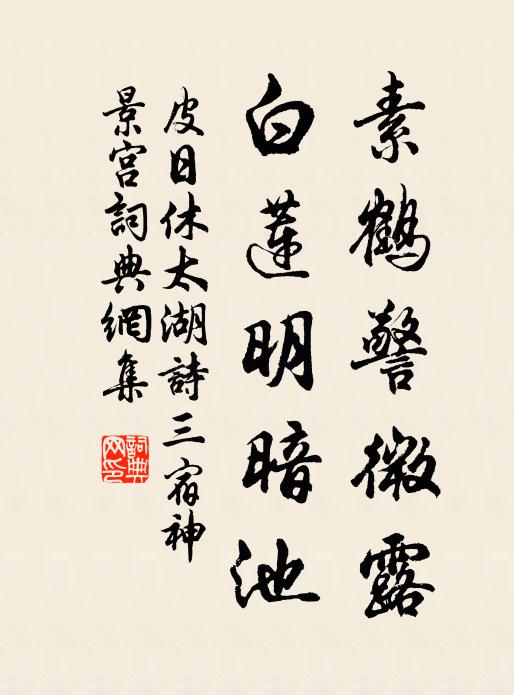 素鶴警微露
白蓮明暗池
皮日休太湖詩三宿神
景宫詞典網集
詞典网印